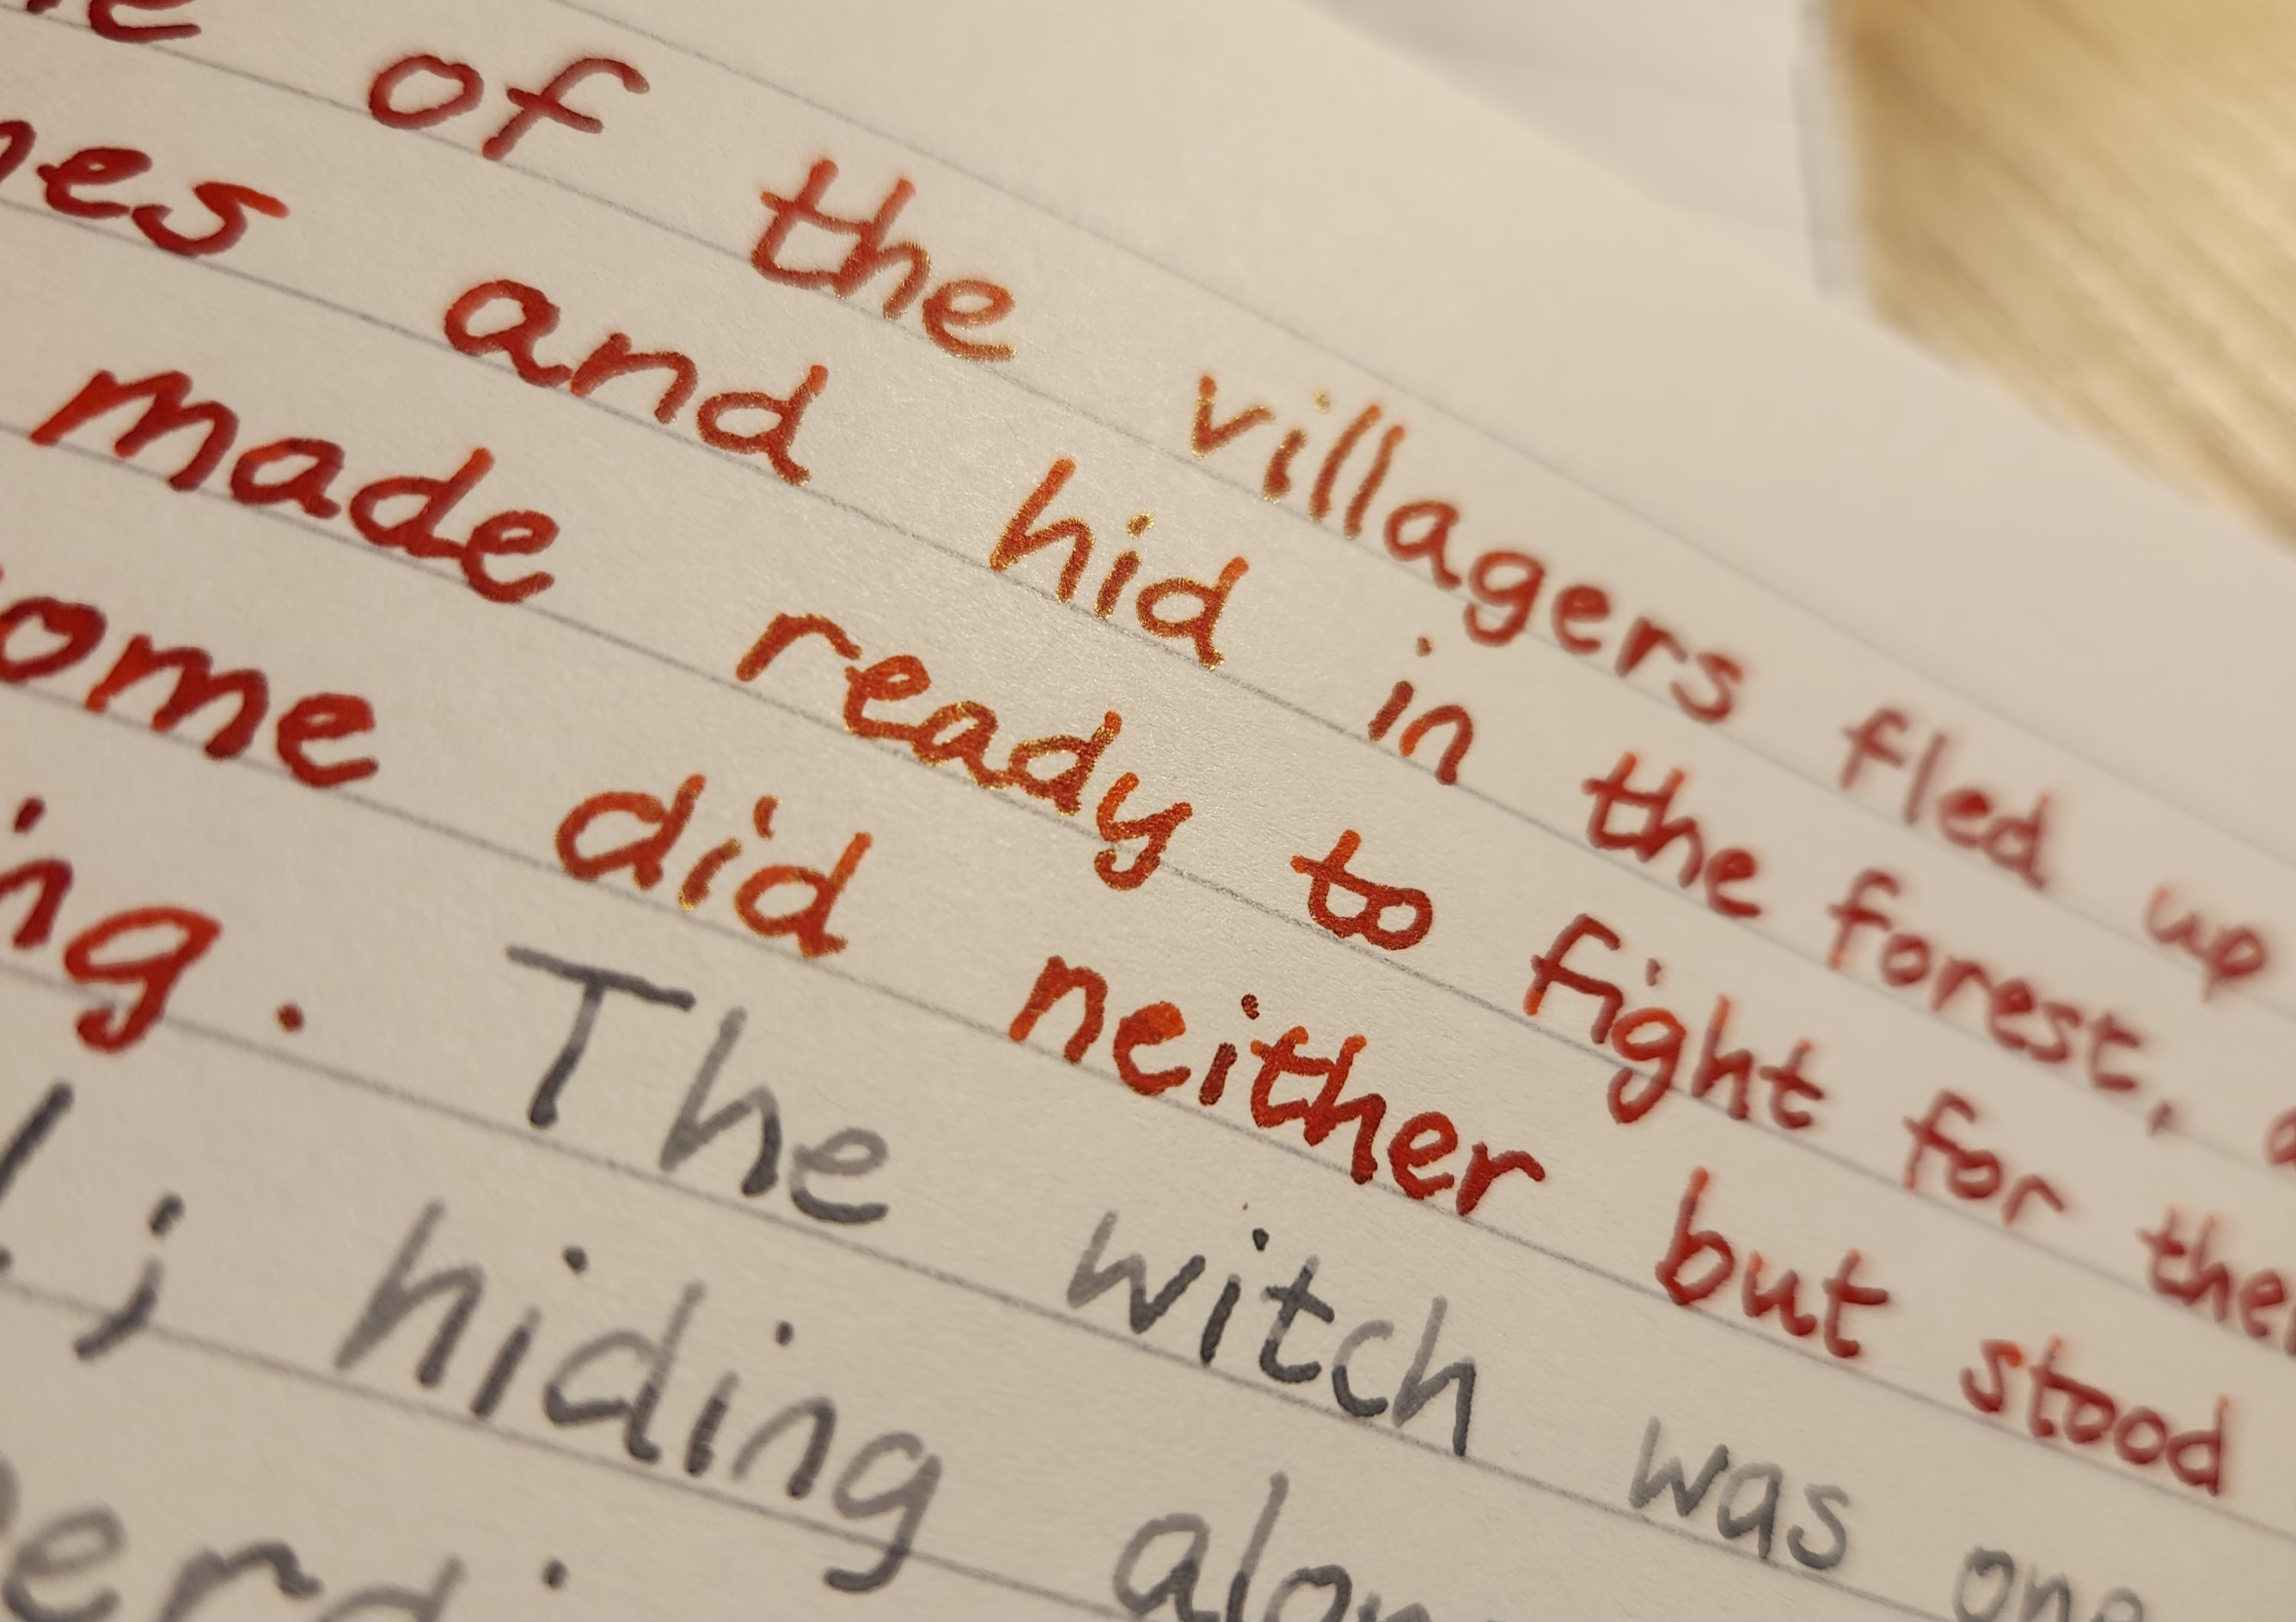 e of the villagers fled up
nes and hid in the forest,
made ready to fight for thei
ome did neither but stood
ing. The witch was one
; hiding alon
erdi